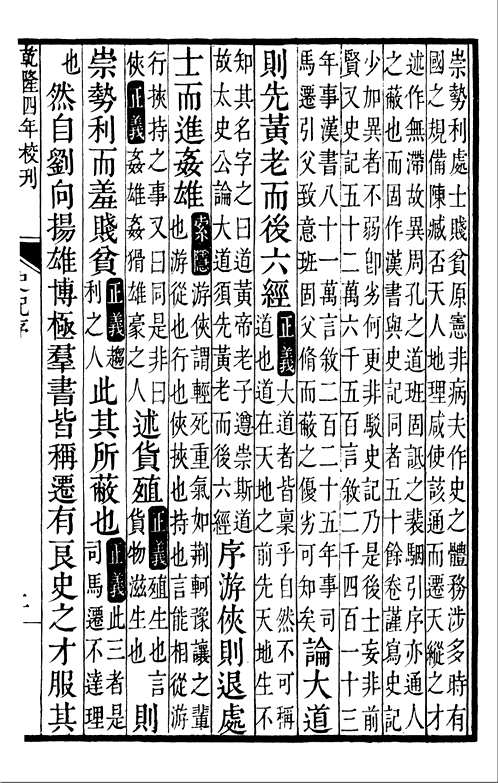 崇勢利處士賤貧原憲非病夫作史之體務涉多時有
國之規備陳臧否天人地理咸使該通而遷天縱之才
述作無滯故異周孔之道班固詆之裴駰引序亦通人
之蔽也而固作漢書與史記同者五十餘卷謹寫史記
少加異者不弱卽劣何更非駮史記乃是後士妄非前
賢又史記五十二萬六千五百言敘二千四百一十三
年事漢書八十一萬言敘二百二十五年事司
馬遷引父致意班固父脩而蔽之優劣可知矣
論大道
則先黃老而後六經
正義大道者皆稟乎自然不可稱
道也道在天地之前先天地生不
知其名字之曰道黃帝老子遵崇斯道
故太史公論大道須先黃老而後六經
序游俠則退處
士而進姦雄
索隱游俠謂輕死重氣如荊軻豫讓之輩
也游從也行也俠挾也持也言能相從游
行挾持之事又曰同是非曰
俠正義姦雄姦猾雄豪之人
述貨殖
正義殖生也言
貨物滋生也
則
崇勢利而羞賤貧
正義趨
利之人
此其所蔽也
正義此三者是
司馬遷不達理
也
然自劉向揚雄博極羣書皆稱遷有良史之才服其
乾隆四年校刊
史記序